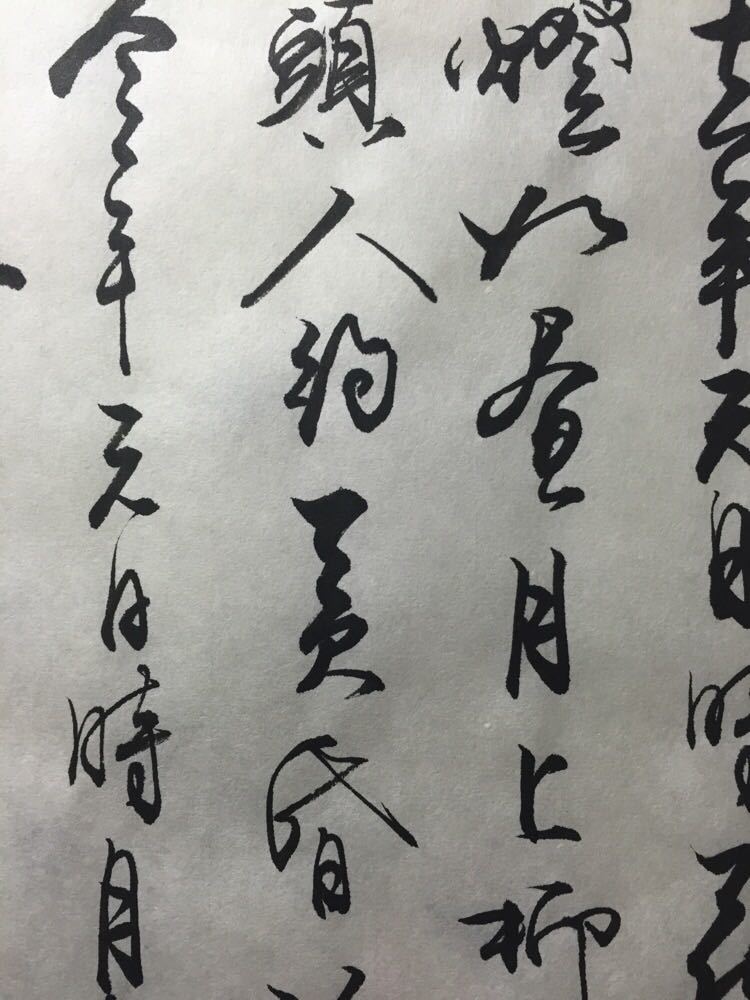 去年元月時花
燈如晝月上柳
頭人約黃昏
今年元月時月